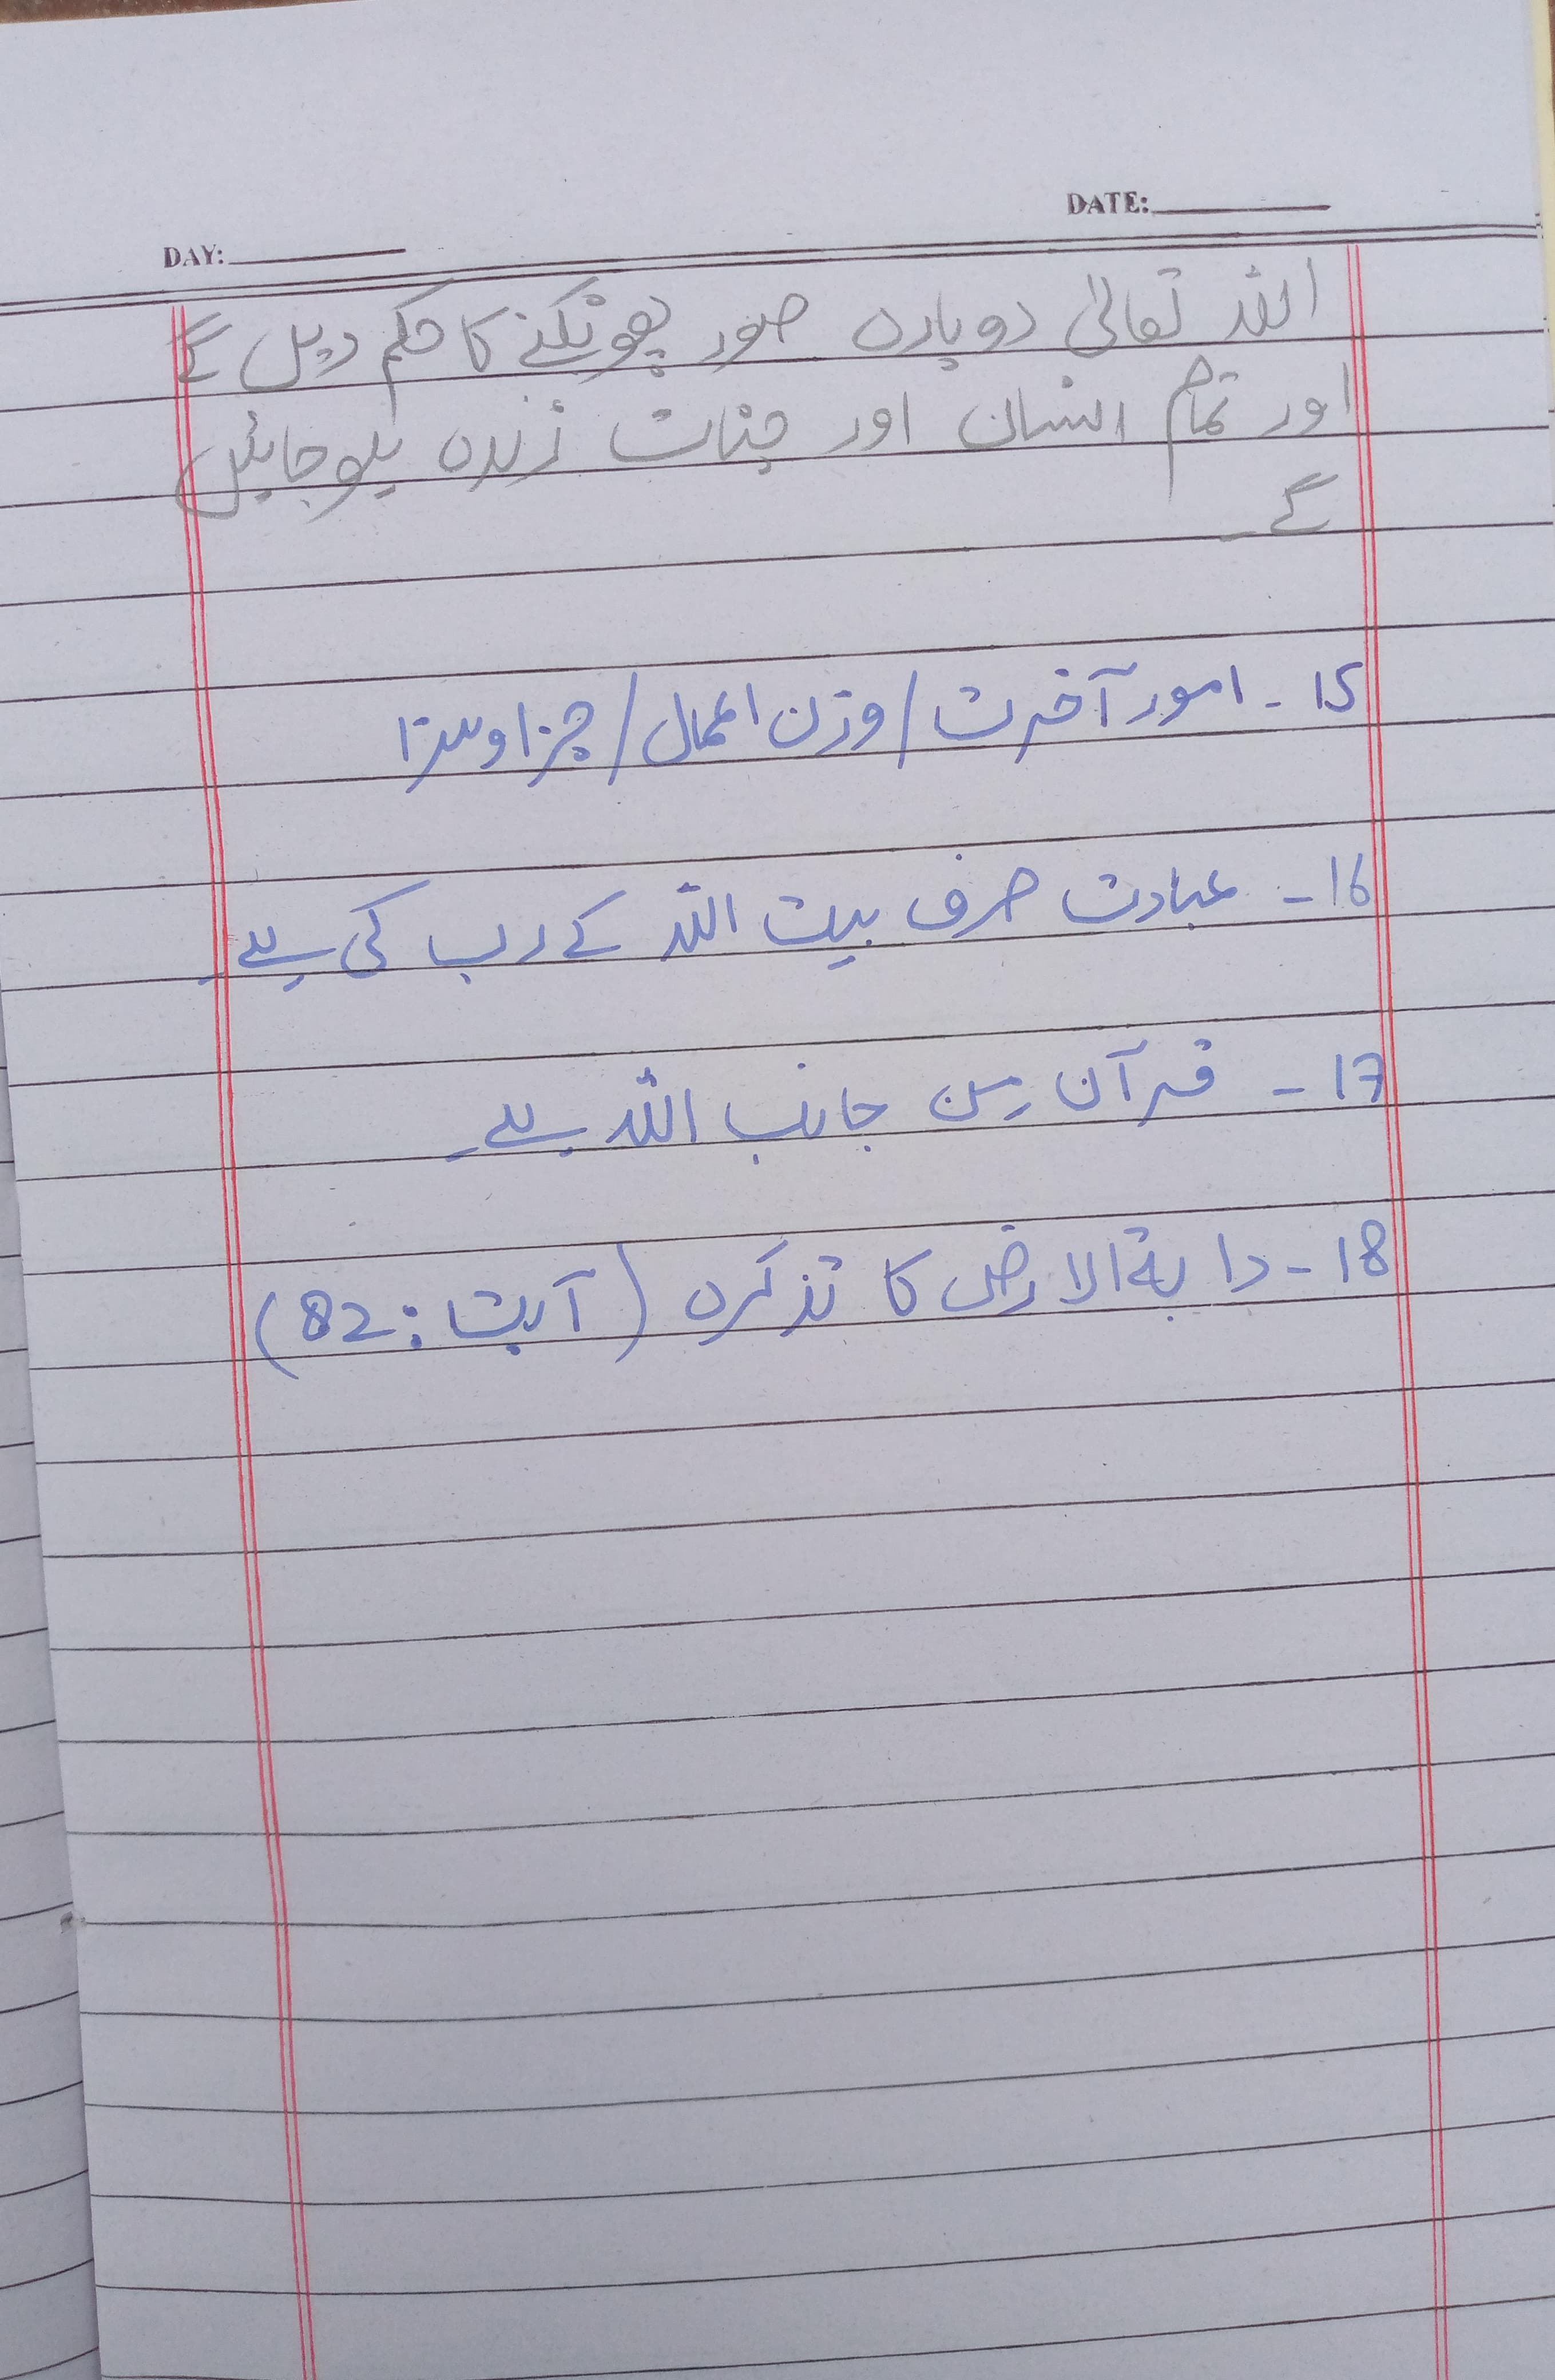 DATE:
DAY:
اللہ تعالیٰ دوبارہ صور پھونکنے کا حکم دیں گے
اور تمام انسان اور جنات زندہ ہو جائیں
گے۔
15 - امور آخرت / وزن اعمال / جزا و سزا
16 - عبادت صرف بیت اللہ کے رب کی ہے۔
17 - قرآن من جانب اللہ ہے۔
18 - دابۃ الارض کا تذکرہ (آیت : 82)